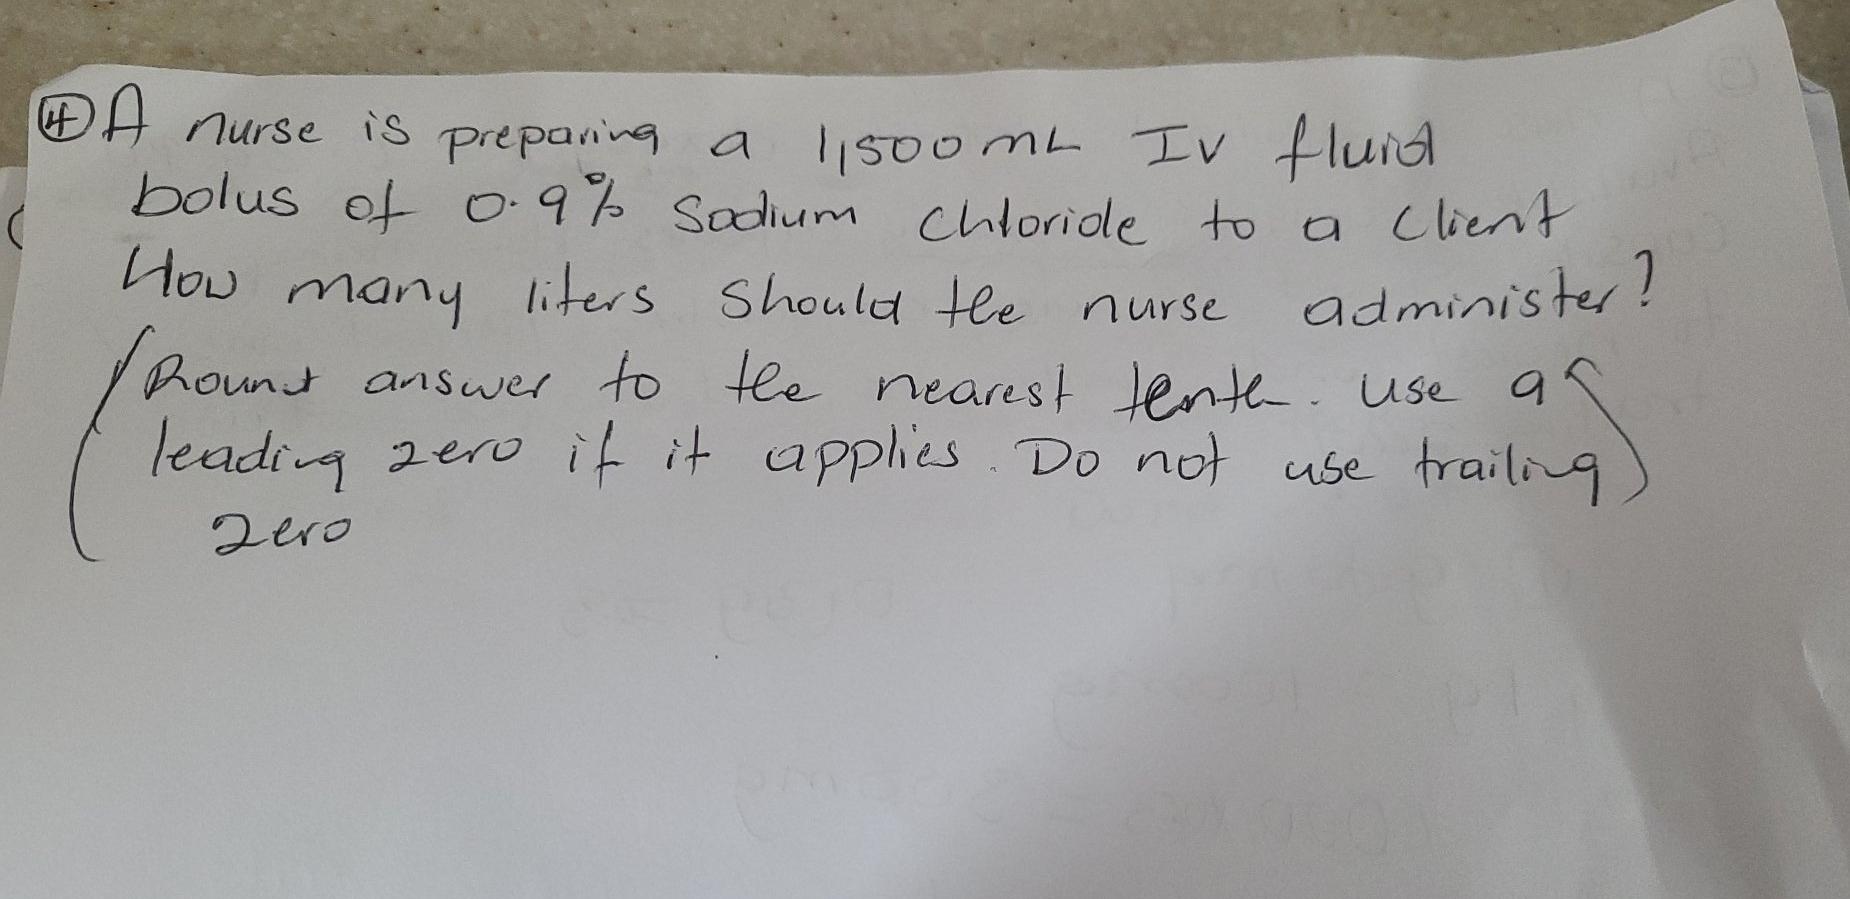 ④ A nurse is preparing a 1,500 mL IV fluid
bolus of 0.9% Sodium Chloride to a Client
How many liters should the nurse administer?
(Round answer to the nearest tenth. Use a
leading zero if it applies. Do not use trailing)
zero